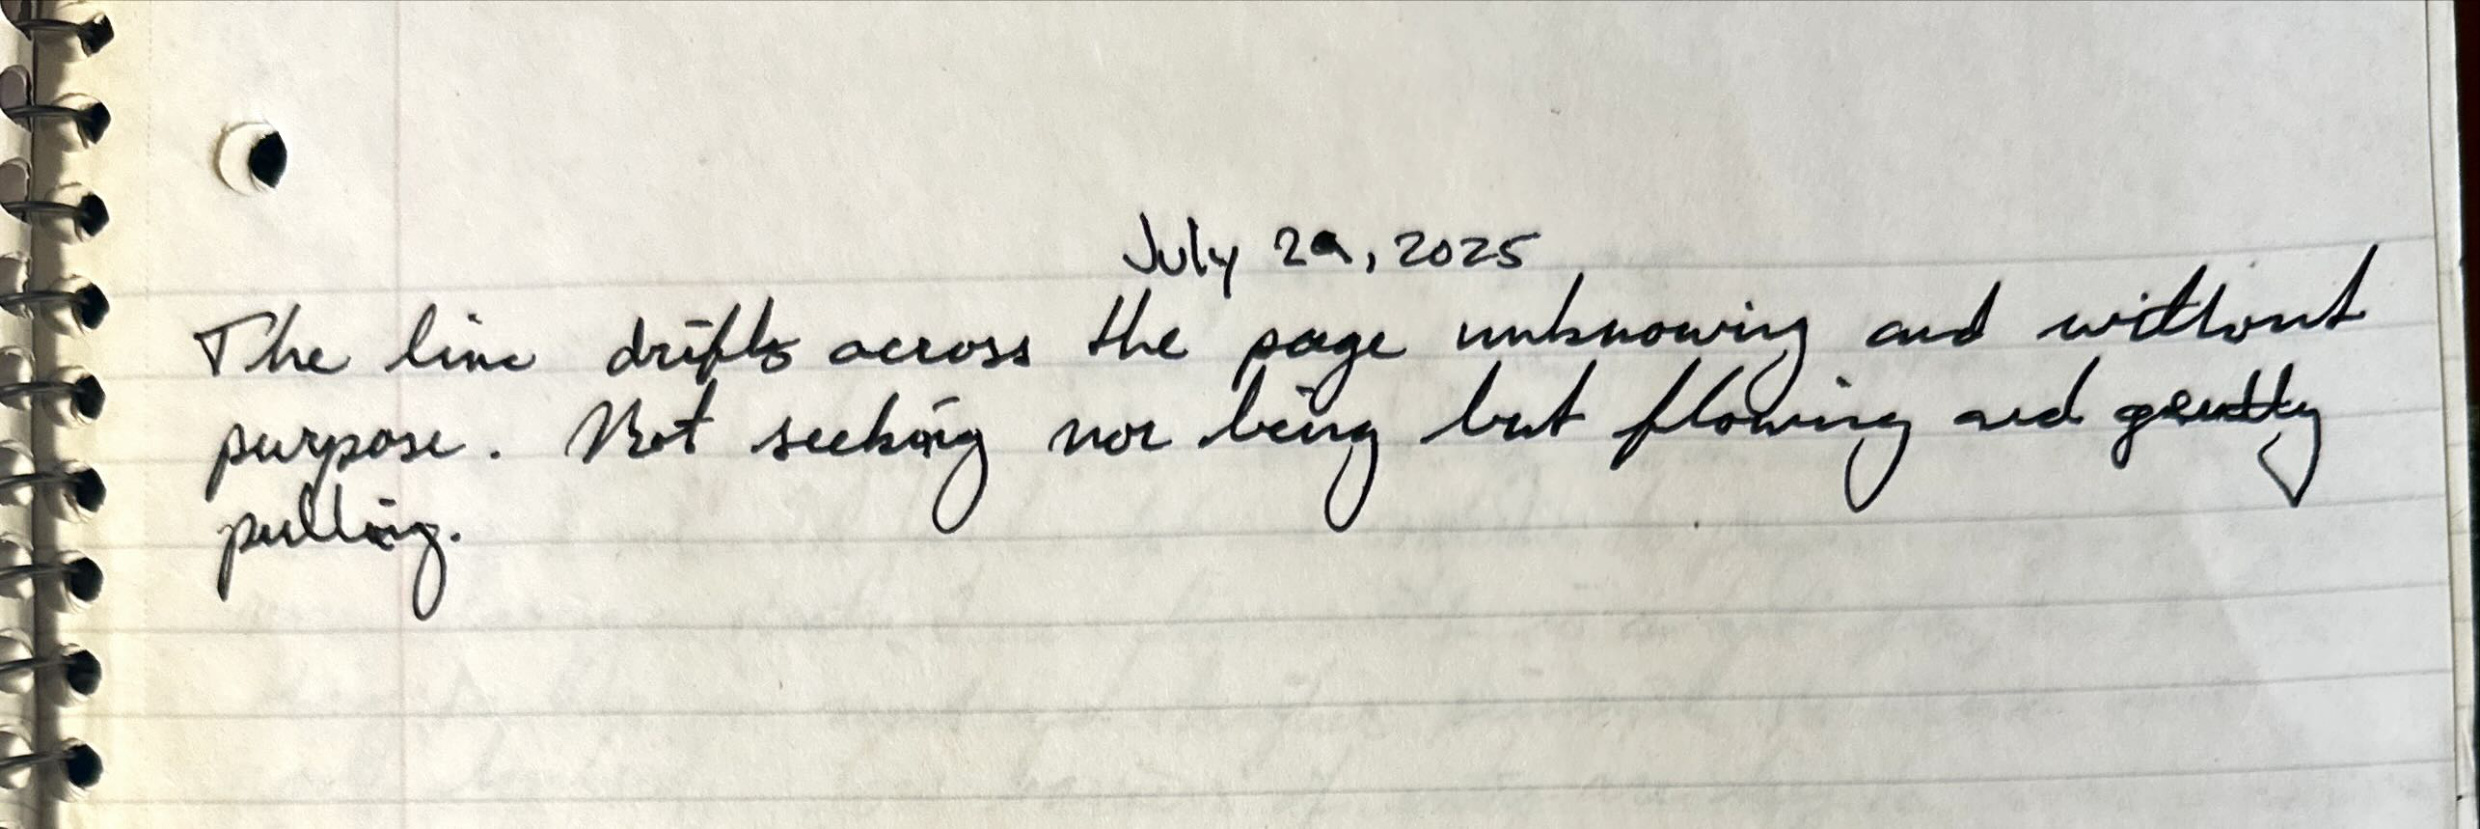 July 29, 2025
The line drifts across the page unknowing and without
purpose. Not seeking nor being but flowing and gently
pulling.